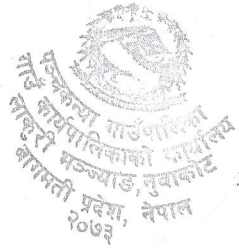 पञ्चकन्या गाउँपालिका
गाउँ कार्यपालिकाको कार्यालय
चोकुरी भञ्ज्याङ, नुवाकोट
बागमती प्रदेश, नेपाल
२०७३